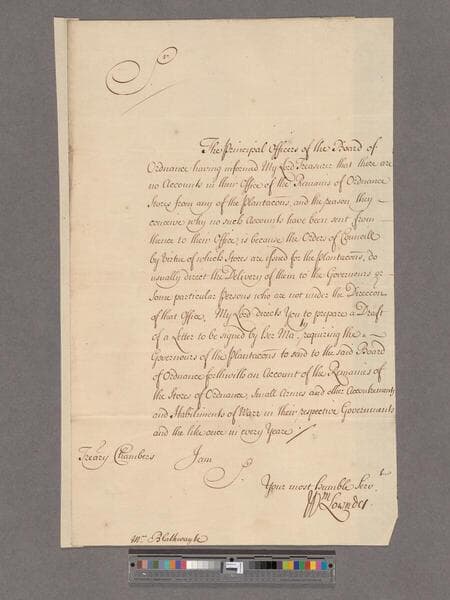 Sr
The Principal Officers of the Board of
Ordnance having informed My Lord Treasurer that there are
no Accounts in their Office of the Remains of Ordnance
Stores from any of the Plantacons, and the reason they
conceive why no such Accounts have been sent from
thence to their Office, is because the Orders of Councill
by Virtue of which Stores are issued for the Plantacons, do
usually direct the Delivery of them to the Governours or
some particular Persons who are not under the Direccon
of that Office, My Lord directs You to prepare a Draft
of a Letter to be signed by her Maty requiring the
Governours of the Plantacons to send to the said Board
of Ordnance forthwith an Account of the Remains of
the Stores of Ordnance, Small Armes and other Accoutremts
and Habiliments of Warr in their respective Governments
and the like once in every Yeare
Treãry Chambers
I am
Sr
Your most humble Servt
Wm Lowndes
Mr Blathwayte